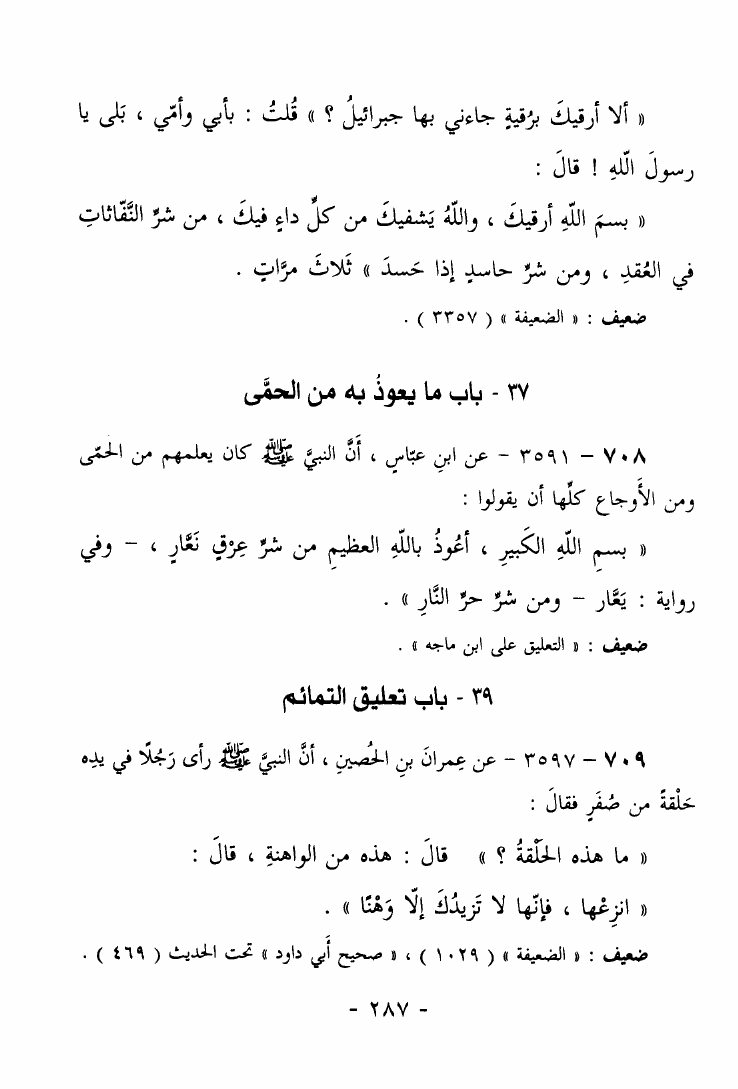 « ألا أرقيكَ برُقيةٍ جاءني بها جبرائيلُ ؟ » قُلتُ : بأبي وأمّي ، بَلى يا
رسولَ اللّهِ ! قالَ :
« بسمَ اللّهِ أرقيكَ ، واللّهُ يَشفيكَ من كلِّ داءٍ فيكَ ، من شرِّ النَّفّاثاتِ
في العُقدِ ، ومن شرِّ حاسدٍ إذا حَسدَ » ثَلاثَ مرَّاتٍ .
ضعيف : « الضعيفة » ( ٣٣٥٧ ) .
٣٧ - باب ما يعوذُ به من الحمَّى
٧٠٨ – ٣٥٩١ - عن ابنِ عبّاسٍ ، أَنَّ النبيَّ ﷺ كان يعلمهم من الحمّى
ومن الأَوجاع كلِّها أن يقولوا :
« بسمِ اللّهِ الكَبيرِ ، أعُوذُ باللّهِ العظيمِ من شرِّ عِرْقٍ نَعَّارٍ ، – وفي
رواية : يَعَّار – ومن شرِّ حرِّ النَّارِ » .
ضعيف : « التعليق على ابن ماجه » .
٣٩ - باب تعليق التمائم
٧٠٩ – ٣٥٩٧ - عن عِمرانَ بنِ الحُصينِ ، أنَّ النبيَّ ﷺ رأى رَجُلًا في يدِه
حَلْقةً من صُفَرٍ فقالَ :
« ما هذه الحَلْقةُ ؟ » قالَ : هذه من الواهنةِ ، قالَ :
« انزِعْها ، فإنّها لا تَزيدُكَ إلّا وَهْنًا » .
ضعيف : « الضعيفة » ( ١٠٢٩ ) ، « صحيح أَبي داود » تحت الحديث ( ٤٦٩ ) .
- ٢٨٧ -